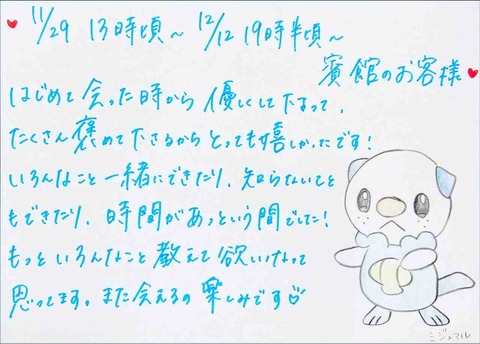 11/29 13時頃～ 12/12 19時半頃～
賓館のお客様
はじめて会った時から優しくして下さって、
たくさん褒めて下さるからとっても嬉しかったです!
いろんなこと一緒にできたり、知らないこと
もできたり、時間があっという間でした!
もっといろんなこと教えて欲しいなって
思ってます。また会えるの楽しみです
ミジュマル